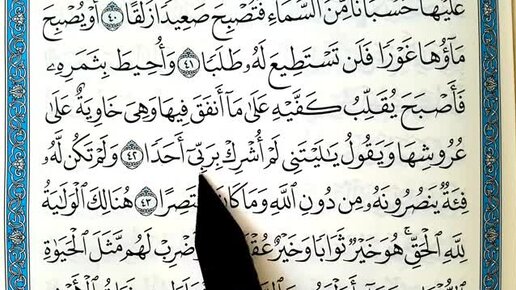 عَلَيْهَا حُسْبَانًا مِّنَ ٱلسَّمَآءِ فَتُصْبِحَ صَعِيدًا زَلَقًا ٤٠ أَوْ يُصْبِحَ
مَآؤُهَا غَوْرًا فَلَن تَسْتَطِيعَ لَهُۥ طَلَبًا ٤١ وَأُحِيطَ بِثَمَرِهِۦ
فَأَصْبَحَ يُقَلِّبُ كَفَّيْهِ عَلَىٰ مَآ أَنفَقَ فِيهَا وَهِىَ خَاوِيَةٌ عَلَىٰ
عُرُوشِهَا وَيَقُولُ يَٰلَيْتَنِى لَمْ أُشْرِكْ بِرَبِّىٓ أَحَدًا ٤٢ وَلَمْ تَكُن لَّهُۥ
فِئَةٌ يَنصُرُونَهُۥ مِن دُونِ ٱللَّهِ وَمَا كَانَ ٤٣ هُنَالِكَ ٱلْوَلَٰيَةُ
لِلَّهِ ٱلْحَقِّ ۚ هُوَ خَيْرٌ ثَوَابًا وَخَيْرٌ لَهُم مَّثَلَ ٱلْحَيَوٰةِ